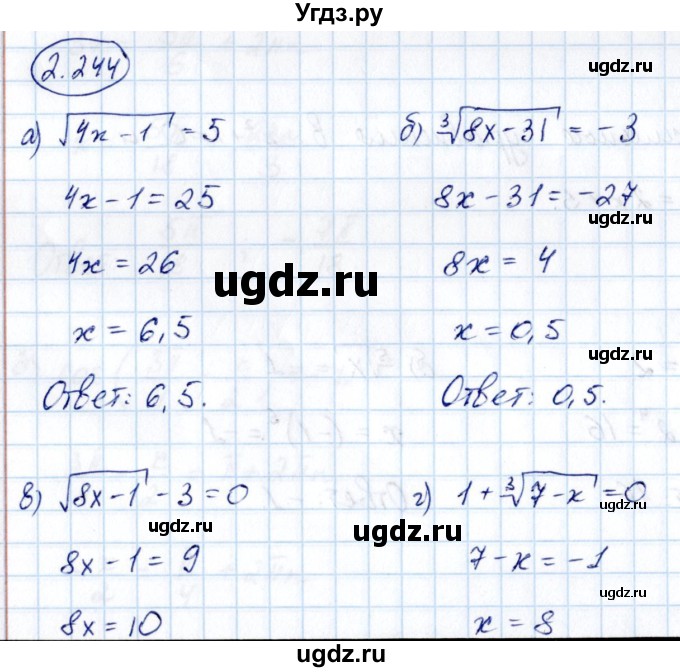 Угдз.ру
2.244
ugdz.ru
а) √(4x − 1) = 5
4x − 1 = 25
4x = 26
x = 6,5
Ответ: 6,5.
б) ∛(8x − 31) = −3
8x − 31 = −27
ugdz.ru
8x = 4
ugdz.ru
x = 0,5
ugdz.ru
Ответ: 0,5.
в) √(8x − 1) − 3 = 0
ugdz.ru
8x − 1 = 9
8x = 10
г) 1 + ∛(7 − x) = 0
ugdz.ru
ugdz.ru
7 − x = −1
x = 8
ugdz.ru
ugdz.ru